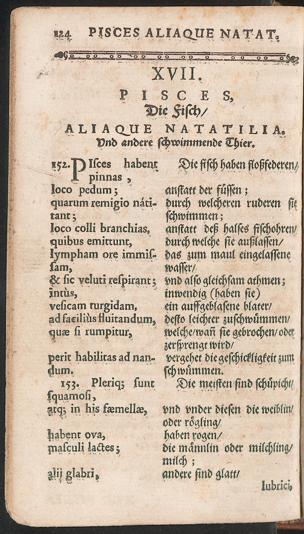 124 PISCES ALIAQUE NATAT.
XVII.
PISCES,
Die Fisch/
ALIAQUE NATATILIA.
Vnd andere schwimmende Thier.
152. PIsces habent Die fisch haben floßfederen/
pinnas,
loco pedum; anstatt der füssen;
quarum remigio náti- durch welcheren ruderen sie
tant; schwimmen;
loco colli branchias, anstatt deß halses fischohren/
quibus emittunt, durch welche sie außlassen/
lympham ore immis- das zum maul eingelassene
sam, wasser/
& sic veluti respirant; vnd also gleichsam athmen;
intùs, inwendig (haben sie)
vesicam turgidam, ein auffgeblasene blater/
ad faciliùs fluitandum, desto leichter zuschwümmen/
quæ si rumpitur, welche/wañ sie gebrochen/oder
zersprengt wird/
perit habilitas ad nan- vergehet die geschickligkeit zum
dum. schwümmen.
153. Pleriq; sunt Die meisten sind schüpicht/
squamosi,
atq; in his fœmellæ, vnd vnder diesen die weiblin/
oder rögling/
habent ova, haben rogen/
masculi lactes; die männlin oder milchling/
milch;
alij glabri, andere sind glatt/
lubrici,